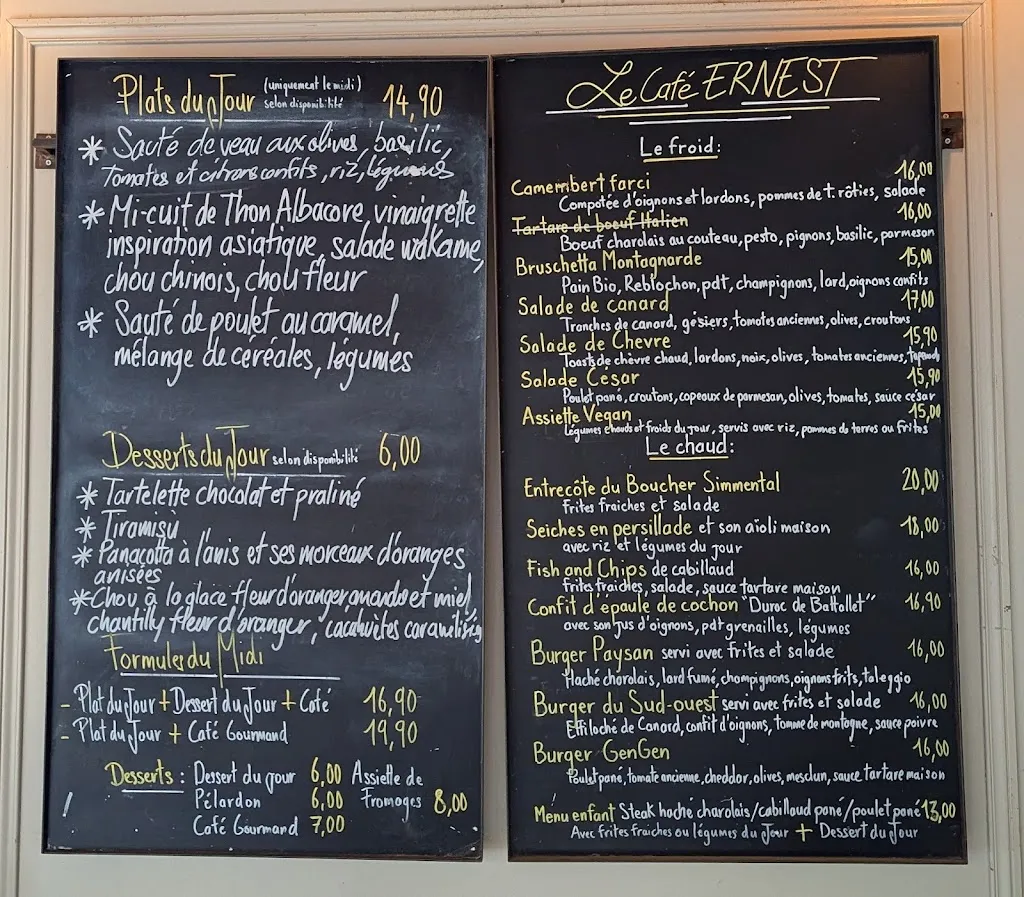 Plats du Jour (uniquement le midi) selon disponibilité 14,90
* Sauté de veau aux olives, basilic,
Tomates et citrons confits, riz, légumes
* Mi-cuit de Thon Albacore, vinaigrette
inspiration asiatique, salade wakame,
chou chinois, chou fleur
* Sauté de poulet au caramel,
mélange de céréales, légumes
Desserts du Jour selon disponibilité 6,00
* Tartelette chocolat et praliné
* Tiramisù
* Panacotta à l'anis et ses morceaux d'oranges
anisées
* Chou à la glace fleur d'oranger, amande et miel,
chantilly fleur d'oranger, cacahuètes caramélisées
Formules du Midi
- Plat du Jour + Dessert du Jour + Café 16,90
- Plat du Jour + Café Gourmand 19,90
Desserts : Dessert du jour 6,00 Assiette de
Pélardon 6,00 Fromages 8,00
Café Gourmand 7,00
Le Café ERNEST
Le froid :
Camembert farci 16,00
Compotée d'oignons et lardons, pommes de t. rôties, salade
Tartare de boeuf Italien 16,00
Boeuf charolais au couteau, pesto, pignons, basilic, parmesan
Bruschetta Montagnarde 15,00
Pain Bio, Reblochon, pdt, champignons, lard, oignons confits
Salade de canard 17,00
Tranches de canard, gésiers, tomates anciennes, olives, croutons
Salade de Chevre 15,90
Toasts de chèvre chaud, lardons, noix, olives, tomates anciennes,
Salade César 15,90
Poulet pané, croutons, copeaux de parmesan, olives, tomates, sauce césar
Assiette Vegan 15,00
Légumes chauds et froids du jour, servis avec riz, pommes de terres ou frites
Le chaud :
Entrecôte du Boucher Simmental 20,00
Frites fraiches et salade
Seiches en persillade et son aïoli maison 18,00
avec riz et légumes du jour
Fish and Chips de cabillaud 16,00
frites fraiches, salade, sauce tartare maison
Confit d'épaule de cochon "Duroc de Batallet" 16,90
avec son jus d'oignons, pdt grenailles, légumes
Burger Paysan servi avec frites et salade 16,00
Haché charolais, lard fumé, champignons, oignons frits, taleggio
Burger du Sud-ouest servi avec frites et salade 16,00
Effiloché de Canard, confit d'oignons, tomme de montagne, sauce poivre
Burger GenGen 16,00
Poulet pané, tomate ancienne, cheddar, olives, mesclun, sauce tartare maison
Menu enfant Steak haché charolais/cabillaud pané/poulet pané 13,00
Avec frites fraiches ou légumes du Jour + Dessert du Jour